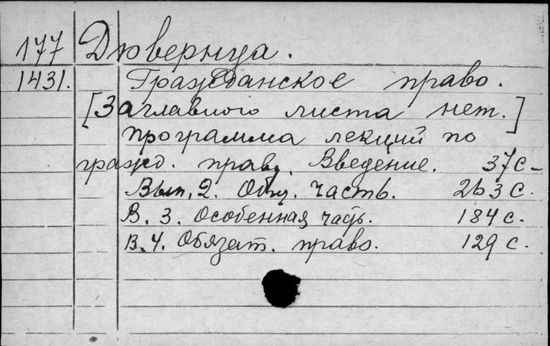 177 Дювернуа.
1431. Гражданское право.
[Заглавного листа нет.]
программа лекций по
гражд. праву. Введение. 37 с.
Вып. 2. Общ. часть. 263 с.
В. 3. Особенная часть. 184 с.
В. 4. Обязат. право. 129 с.